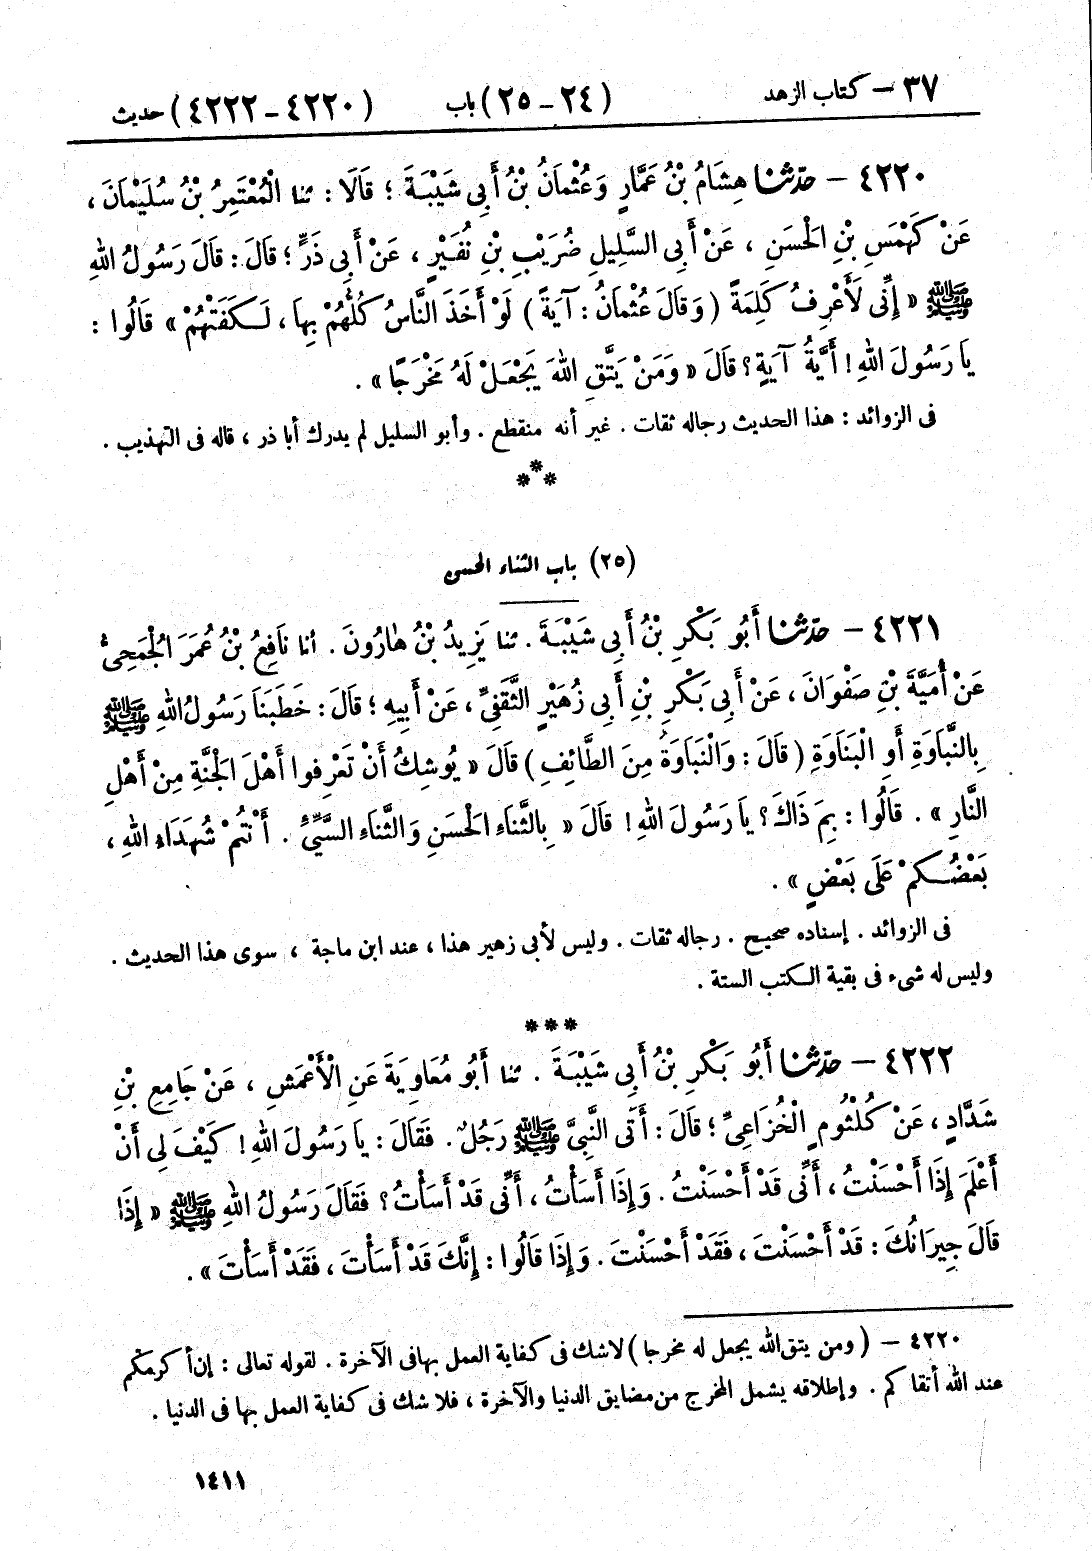 ٣٧ – كتاب الزهد (٢٤ – ٢٥) باب (٤٢٢٠ – ٤٢٢٢) حديث
٤٢٢٠ – حدّثنا هِشَامُ بْنُ عَمَّارٍ وَعُثْمَانُ بْنُ أَبِي شَيْبَةَ ؛ قَالَا : ثنا الْمُعْتَمِرُ بْنُ سُلَيْمَانَ ،
عَنْ كَهْمَسِ بْنِ الْحَسَنِ ، عَنْ أَبِي السَّلِيلِ ضُرَيْبِ بْنِ نُفَيْرٍ ، عَنْ أَبِي ذَرٍّ ؛ قَالَ : قَالَ رَسُولُ اللهِ
ﷺ « إِنِّي لَأَعْرِفُ كَلِمَةً ( وَقَالَ عُثْمَانُ : آيَةً ) لَوْ أَخَذَ النَّاسُ كُلُّهُمْ بِهَا ، لَكَفَتْهُمْ » قَالُوا :
يَا رَسُولَ اللهِ ! أَيَّةُ آيَةٍ ؟ قَالَ « وَمَنْ يَتَّقِ اللهَ يَجْعَلْ لَهُ مَخْرَجًا » .
فى الزوائد : هذا الحديث رجاله ثقات . غير أنه منقطع . وأبو السليل لم يدرك أبا ذر ، قاله فى التهذيب .
***
(٢٥) باب الثناء الحسن
٤٢٢١ – حدّثنا أَبُو بَكْرِ بْنُ أَبِي شَيْبَةَ . ثنا يَزِيدُ بْنُ هَارُونَ . أنا نَافِعُ بْنُ عُمَرَ الْجُمَحِيُّ
عَنْ أُمَيَّةَ بْنِ صَفْوَانَ ، عَنْ أَبِي بَكْرِ بْنِ أَبِي زُهَيْرٍ الثَّقَفِيِّ ، عَنْ أَبِيهِ ؛ قَالَ : خَطَبَنَا رَسُولُ اللهِ ﷺ
بِالنَّبَاوَةِ أَوِ الْبَنَاوَةِ ( قَالَ : وَالنَّبَاوَةُ مِنَ الطَّائِفِ ) قَالَ « يُوشِكُ أَنْ تَعْرِفُوا أَهْلَ الْجَنَّةِ مِنْ أَهْلِ
النَّارِ » . قَالُوا : بِمَ ذَاكَ ؟ يَا رَسُولَ اللهِ ! قَالَ « بِالثَّنَاءِ الْحَسَنِ وَالثَّنَاءِ السَّيِّئِ . أَنْتُمْ شُهَدَاءُ اللهِ ،
بَعْضُكُمْ عَلَى بَعْضٍ » .
فى الزوائد . إسناده صحيح . رجاله ثقات . وليس لأبى زهير هذا ، عند ابن ماجة ، سوى هذا الحديث .
وليس له شىء فى بقية الكتب الستة .
***
٤٢٢٢ – حدّثنا أَبُو بَكْرِ بْنُ أَبِي شَيْبَةَ . ثنا أَبُو مُعَاوِيَةَ عَنِ الْأَعْمَشِ ، عَنْ جَامِعِ بْنِ
شَدَّادٍ ، عَنْ كُلْثُومٍ الْخُزَاعِيِّ ؛ قَالَ : أَتَى النَّبِيَّ ﷺ رَجُلٌ . فَقَالَ : يَا رَسُولَ اللهِ ! كَيْفَ لِي أَنْ
أَعْلَمَ إِذَا أَحْسَنْتُ ، أَنِّي قَدْ أَحْسَنْتُ . وَإِذَا أَسَأْتُ ، أَنِّي قَدْ أَسَأْتُ ؟ فَقَالَ رَسُولُ اللهِ ﷺ « إِذَا
قَالَ جِيرَانُكَ : قَدْ أَحْسَنْتَ ، فَقَدْ أَحْسَنْتَ . وَإِذَا قَالُوا : إِنَّكَ قَدْ أَسَأْتَ ، فَقَدْ أَسَأْتَ » .
٤٢٢٠ – ( ومن يتق الله يجعل له مخرجا ) لاشك فى كفاية العمل بهافى الآخرة . لقوله تعالى : إن أكرمكم
عند الله أتقاكم . وإطلاقه يشمل المخرج من مضايق الدنيا والآخرة ، فلا شك فى كفاية العمل بها فى الدنيا .
١٤١١